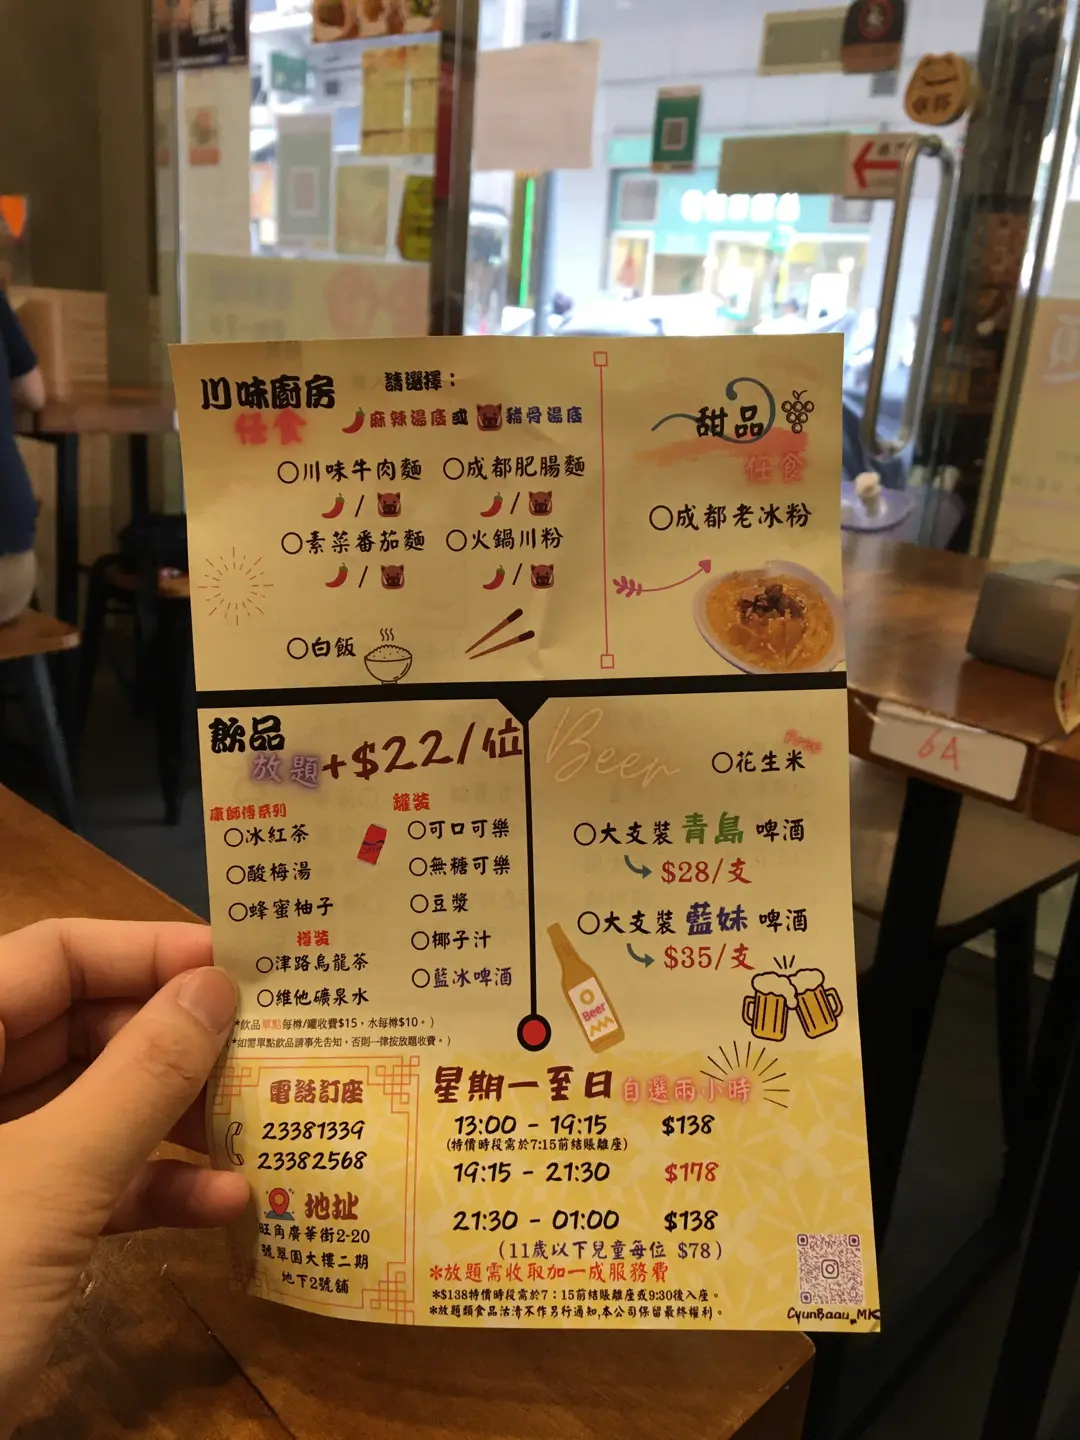 川味廚房
任食
請選擇：
麻辣湯底或豬骨湯底
○川味牛肉麵 ○成都肥腸麵
/ /
○素菜番茄麵 ○火鍋川粉
/ /
○白飯
甜品
任食
○成都老冰粉
飲品
放題
+$22/位
康師傅系列
○冰紅茶
○酸梅湯
○蜂蜜柚子
樽裝
○津路烏龍茶
○維他礦泉水
罐裝
○可口可樂
○無糖可樂
○豆漿
○椰子汁
○藍冰啤酒
*飲品單點每樽/罐收費$15，水每樽$10。)
(*如需單點飲品請事先告知，否則一律按放題收費。)
Beer
Free
○花生米
○大支裝 青島 啤酒
$28/支
○大支裝 藍妹 啤酒
$35/支
Beer
電話訂座
23381339
23382568
地址
旺角廣華街2-20
號翠園大樓二期
地下2號舖
星期一至日 自選兩小時
13:00 - 19:15 $138
(特價時段需於7:15前結賬離座)
19:15 - 21:30 $178
21:30 - 01:00 $138
(11歲以下兒童每位 $78)
*放題需收取加一成服務費
*$138特價時段需於7：15前結賬離座或9:30後入座。
*放題類食品沽清不作另行通知,本公司保留最終權利。
CyunBaau_MK
6A